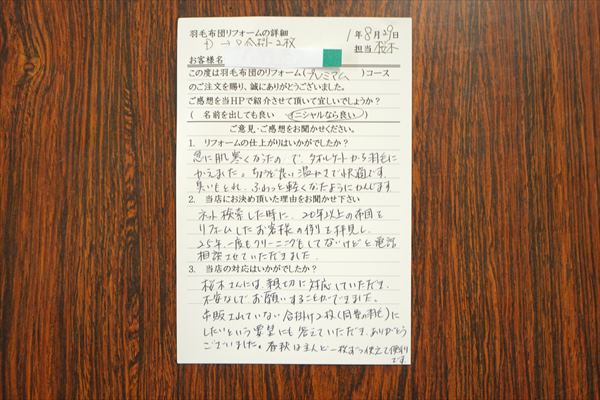 羽毛布団リフォームの詳細
1年8月29日
D→合掛け2枚
担当 桜木
お客様名
この度は羽毛布団のリフォーム(プレミアム)コース
のご注文を賜り、誠にありがとうございました。
ご感想を当HPで紹介させて頂いて宜しいでしょうか?
( 名前を出しても良い イニシャルなら良い )
ご意見・ご感想をお聞かせください。
1. リフォームの仕上がりはいかがでしたか?
急に肌寒くなったので、タオルケットから羽毛に
かえました。ちょうど良い温かさで快適です。
臭いもとれ、ふわっと軽くなったようにかんじます。
2. 当店にお決め頂いた理由をお聞かせ下さい
ネット検索した時に、20年以上の布団を
リフォームしたお客様の例を拝見し、
25年、一度もクリーニングもしてないけどと電話
相談させていただきました。
3. 当店の対応はいかがでしたか?
桜木さんには、親切に対応していただき、
不安なしでお願いすることができました。
市販されていない合掛け2枚(同量の羽毛)に
したいという要望にも答えていただき、ありがとう
ございました。春秋はまんど一枚ずつ使えて便利
です。